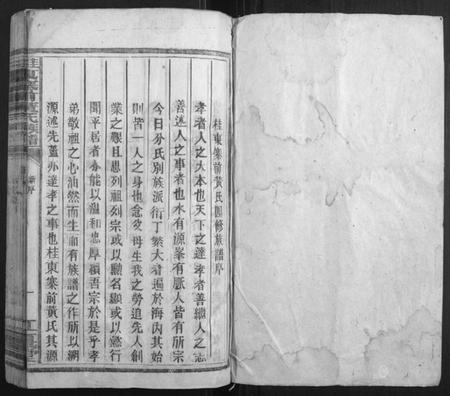 桂東寨前黃氏四修族譜序
孝者人之大本也天下之達孝者善繼人之志
善述人之事者也木有源峯有脈人皆有所宗
今日分氏別族派衍丁繁大者遍於海內其始
則皆一人之身也念父母生我之勞追先人創
業之艱且思列祖列宗或以勳名顯或以懿行
聞平居者亦能以溫和忠厚穎吾宗於是乎孝
弟敬祖之心油然而生顧有族譜之作所以溯
源述先蓋亦達孝之事也桂東寨前黃氏其源